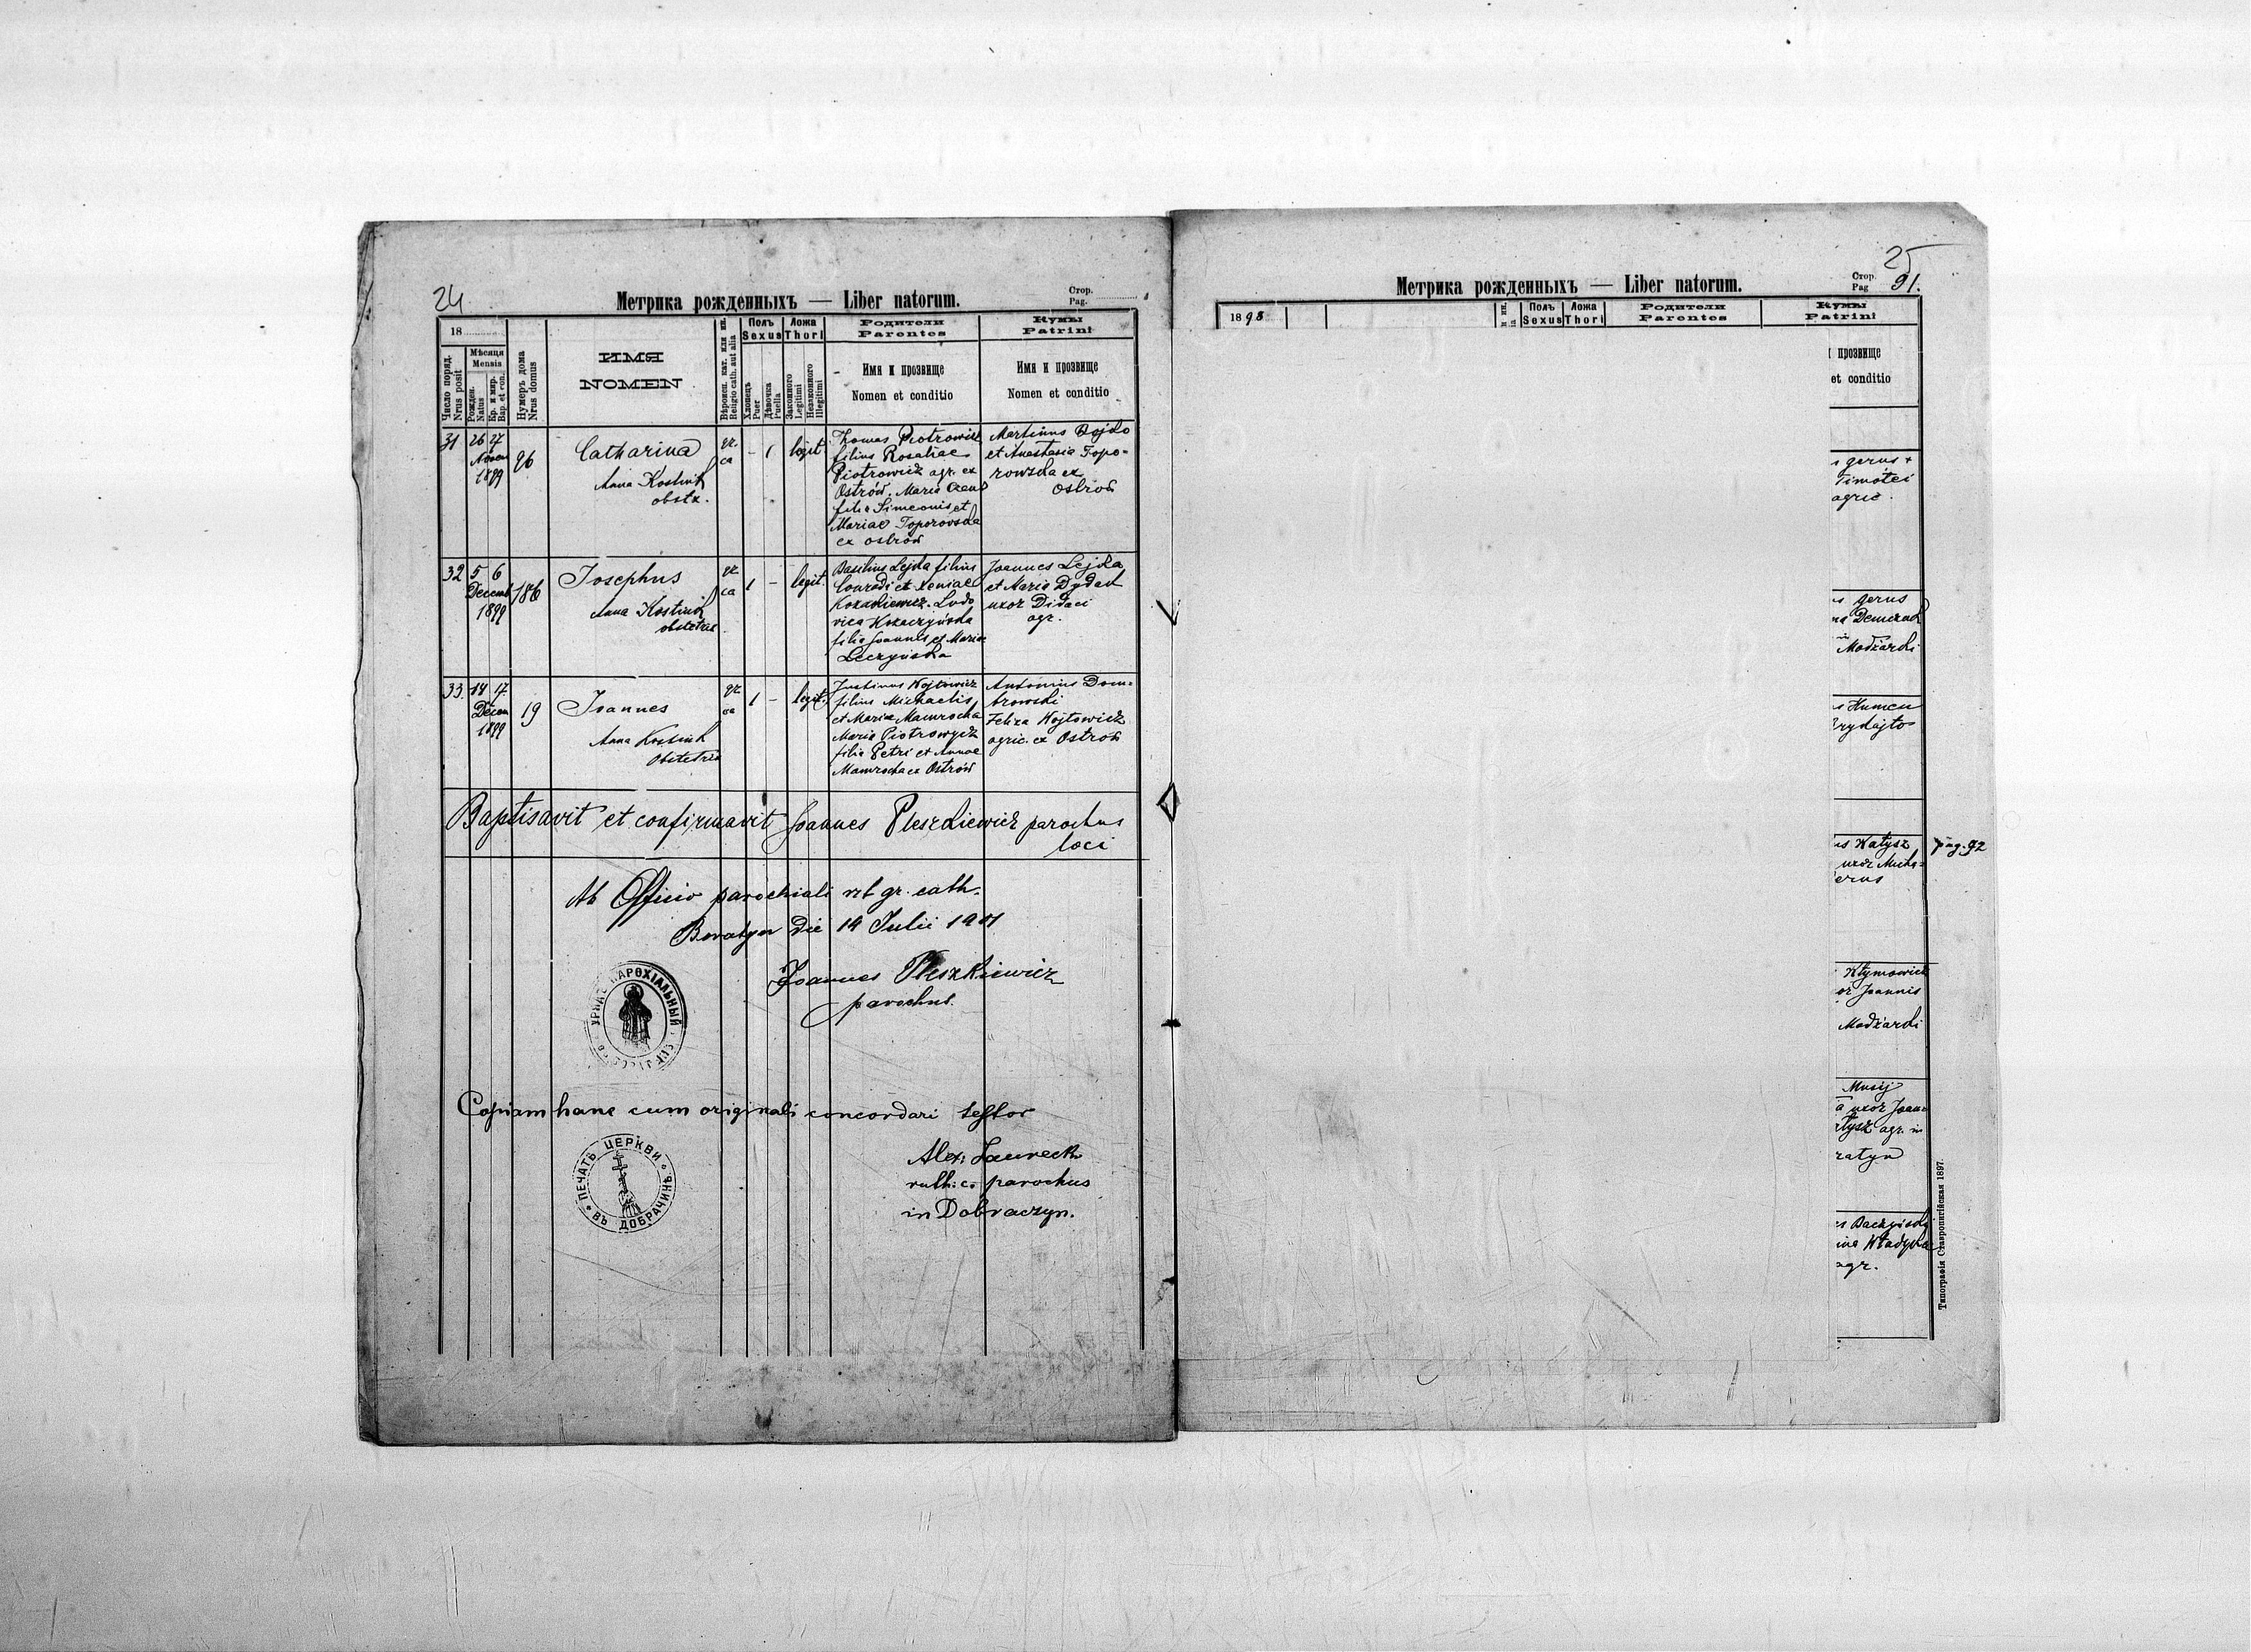 24
Метрика рожденныхъ — Liber natorum.
Стор.
Pag.
18
Число поряд.
Nrus posit
Мѣсяця
Mensis
Рожден.
Natus
Кр. и мир.
Bap. et con.
Нумеръ дома
Nrus domus
ИМЯ
NOMEN
Вѣроисп. кат. или ин.
Religio cath. aut alia
Полъ
Sexus
Хлопецъ
Puer
Дѣвочка
Puella
Ложа
Thori
Законного
Legitimi
Незаконного
Illegitimi
Родители
Parentes
Имя и прозвище
Nomen et conditio
Кумы
Patrini
Имя и прозвище
Nomen et conditio
31
26 27
1899
96
Catharina
Anna Kostiuk
obstx.
gr.
ca
- 1
legit.
Thomas Piotrowicz
filius Rosaliae
Piotrowicz agr. ex
Ostrów. Maria
filia Simeonis et
Mariae Toporovska
ex Ostrów
Martinus
et Anastasia Topo-
rowska ex
Ostrow
32
5 6
Decemb
1899
186
Josephus
Anna Kostiuk
obstetrix
gr.
ca
1 -
legit.
Basilius Lejda filius
Conradi et Xeniae
Kozakiewicz. Ludo
vica
filia Joannis et Mariae
Leczyńska
Joannes Lejda
et Maria Dydach
uxor Didaci
agr.
33.
14 17.
Decem
1899
19
Joannes
Anna Kostiuk
obstetrix
gr.
ca
1 -
legit.
Justinus Wojtowicz
filius Michaelis
et Maria Mamrocha
Maria Piotrowycz
filia Petri et Annae
Mamrocha ex Ostrów
Antonius Dom-
browski
Felixa Wojtowicz
agric. ex Ostrow
Baptisavit et confirmavit Joannes Pleszkiewicz parochus
loci
Ab Officio parochiali rt gr. cath.
Boratyn die 19 Julii 1901
Joannes Pleszkiewicz
parochus.
УРЯДЪ ПАРОХІАЛЬНЫЙ
Copiam hanc cum originali concordari testor
ПЕЧАТЬ ЦЕРКВИ
ВЪ ДОБРАЧИНѢ
Alex:
ruth: c. parochus
in Dobraczyn.
25
Метрика рожденныхъ — Liber natorum.
Стор.
Pag
91.
1898
Полъ
Sexus
Ложа
Thori
Родители
Parentes
Кумы
Patrini
прозвище
et conditio
gerus +
Timotei
agric.
gerus
Demczuk
in
Madżarki
Humen
pag. 92
Watysz
uxor Micha-
erus
Klymowicz
or Joannis
Madżarki
Musij
a uxor Joan-
tysz agr. in
ratyn
Baczyński
ina Kładyka
agr.
Типографія Ставропигійская 1897.